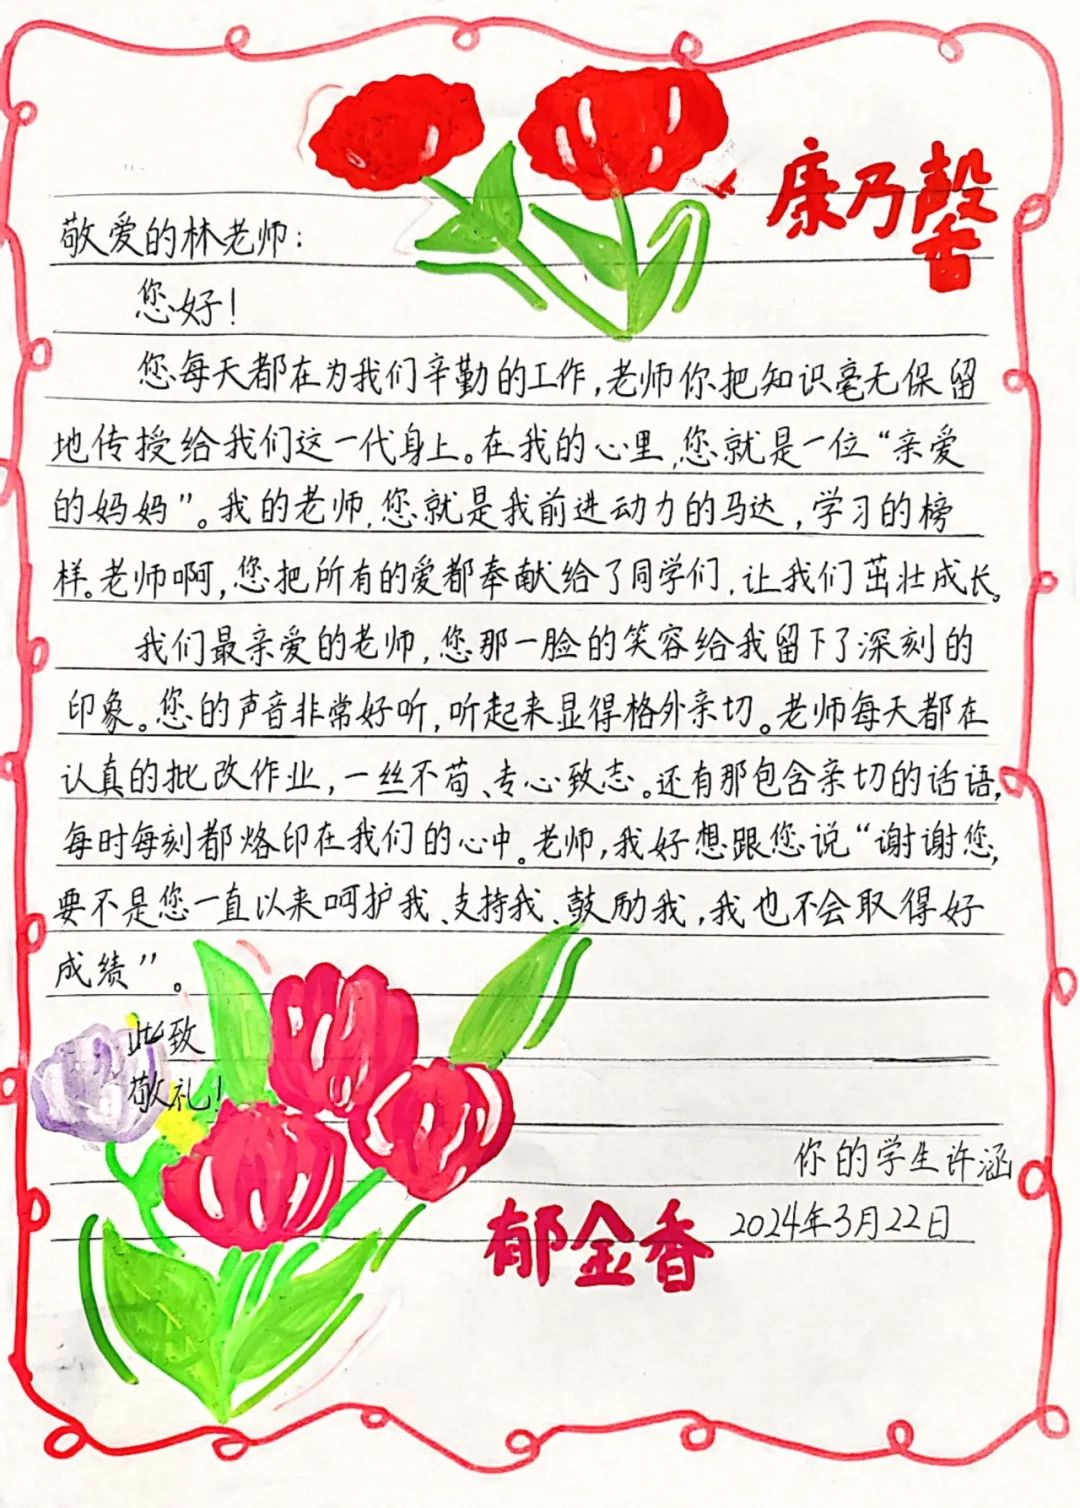 康乃馨
敬爱的林老师：
您好！
您每天都在为我们辛勤的工作，老师你把知识毫无保留
地传授给我们这一代身上。在我的心里，您就是一位“亲爱
的妈妈”。我的老师，您就是我前进动力的马达，学习的榜
样。老师啊，您把所有的爱都奉献给了同学们，让我们茁壮成长。
我们最亲爱的老师，您那一脸的笑容给我留下了深刻的
印象。您的声音非常好听，听起来显得格外亲切。老师每天都在
认真的批改作业，一丝不苟、专心致志。还有那包含亲切的话语，
每时每刻都烙印在我们的心中。老师，我好想跟您说“谢谢您，
要不是您一直以来呵护我、支持我、鼓励我，我也不会取得好
成绩”。
此致
敬礼！
你的学生许涵
郁金香
2024年3月22日